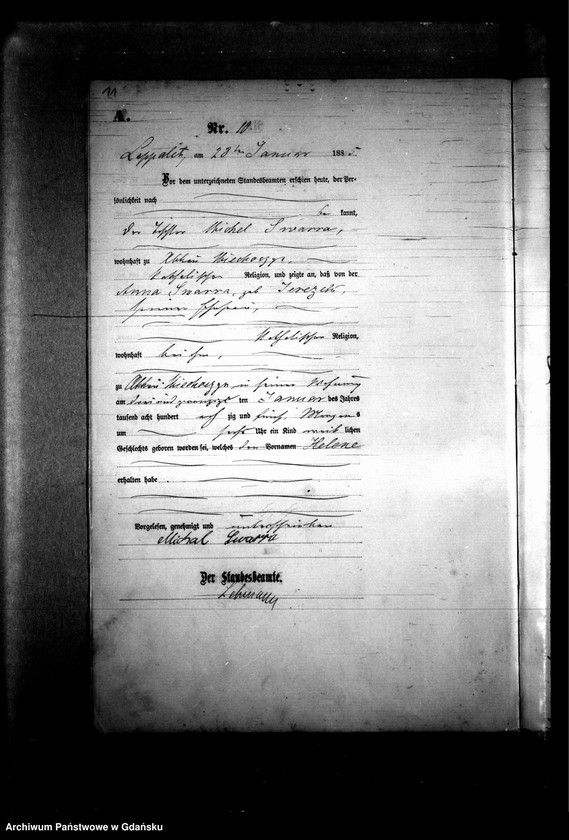 11
A.
Nr. 10.
am 28ten Januar 1885
Vor dem unterzeichneten Standesbeamten erschien heute, der Per-
sönlichkeit nach
be kannt,
der Tischler Michel Swarra,
wohnhaft zu Abbau
katholischer Religion, und zeigte an, daß von der
Anna Swarra, geb
seiner Ehefrau,
katholischer Religion,
wohnhaft bei ihm,
zu Abbau in seiner Wohnung
am ten Januar des Jahres
tausend acht hundert acht zig und fünf Morgens
um sechs Uhr ein Kind weib lichen
Geschlechts geboren worden sei, welches den Vornamen Helene
erhalten habe.
Vorgelesen, genehmigt und unterschrieben
Michal Swarra
Der Standesbeamte.
Archiwum Państwowe w Gdańsku